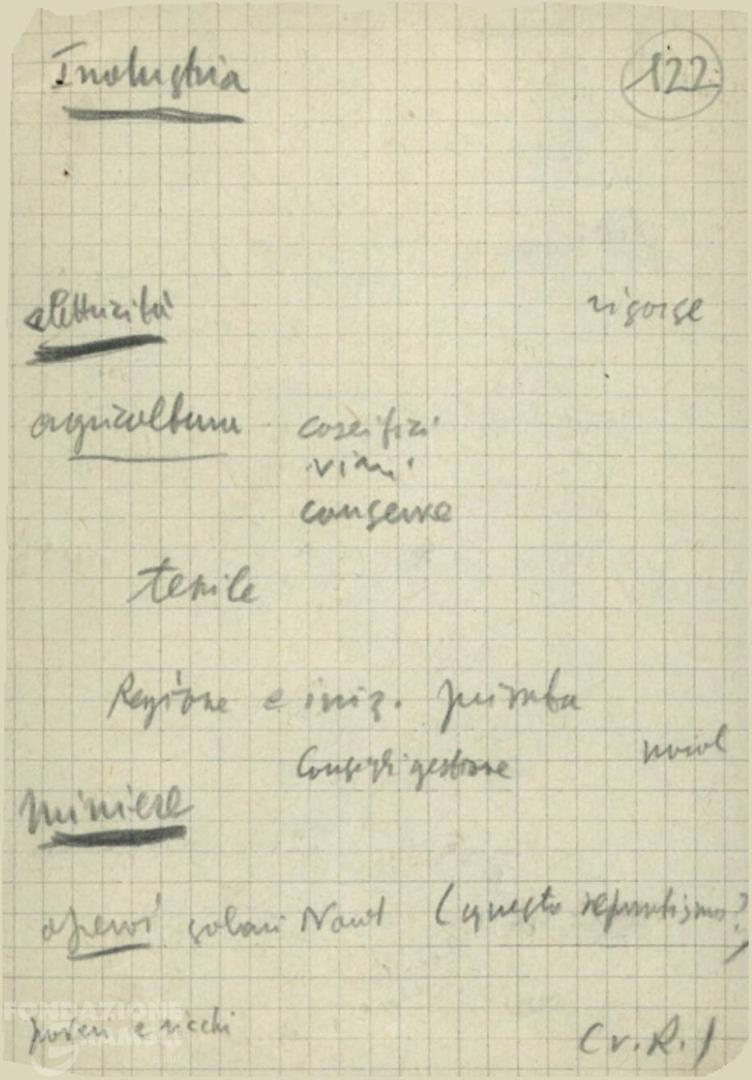 Industria 122
elettricità risorse
agricoltura caseifici
vini
conserve
tessile
Regione e iniz. privata
Consigli gestione nord
miniere
operai salari Nord (questo separatismo?)
poveri e ricchi (v.R.)
FONDAZIONE
GRAMSCI